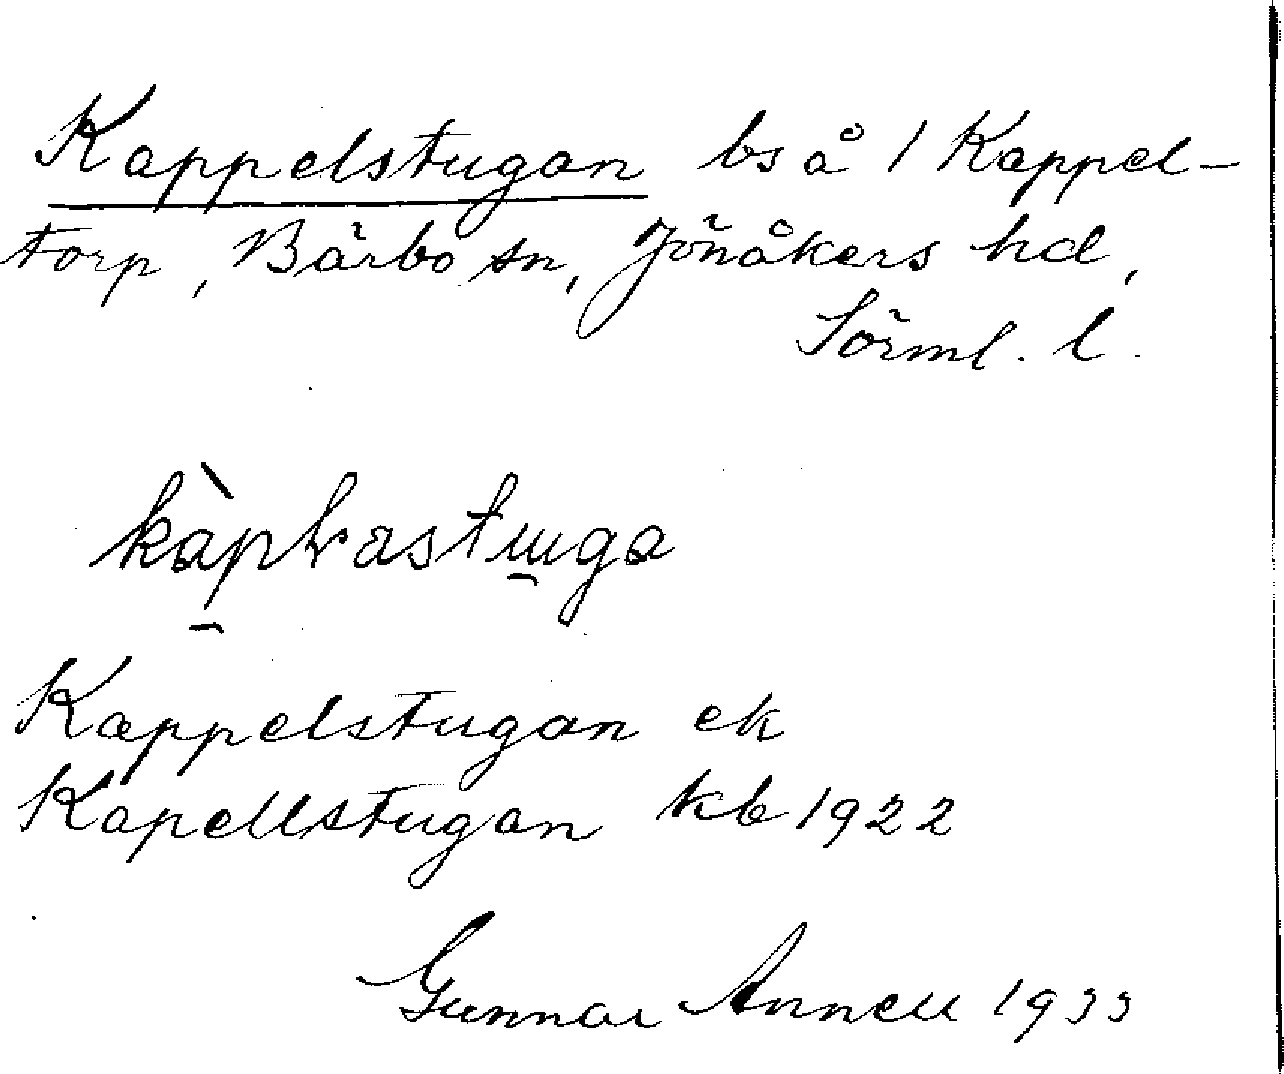 Kappelstugan bs å 1 Kappel-
torp, Bärbo sn, Jönåkers hd,
Sörml. l.
Kappelstugan ek
Kapellstugan kb 1922
Gunnar Annell 1933